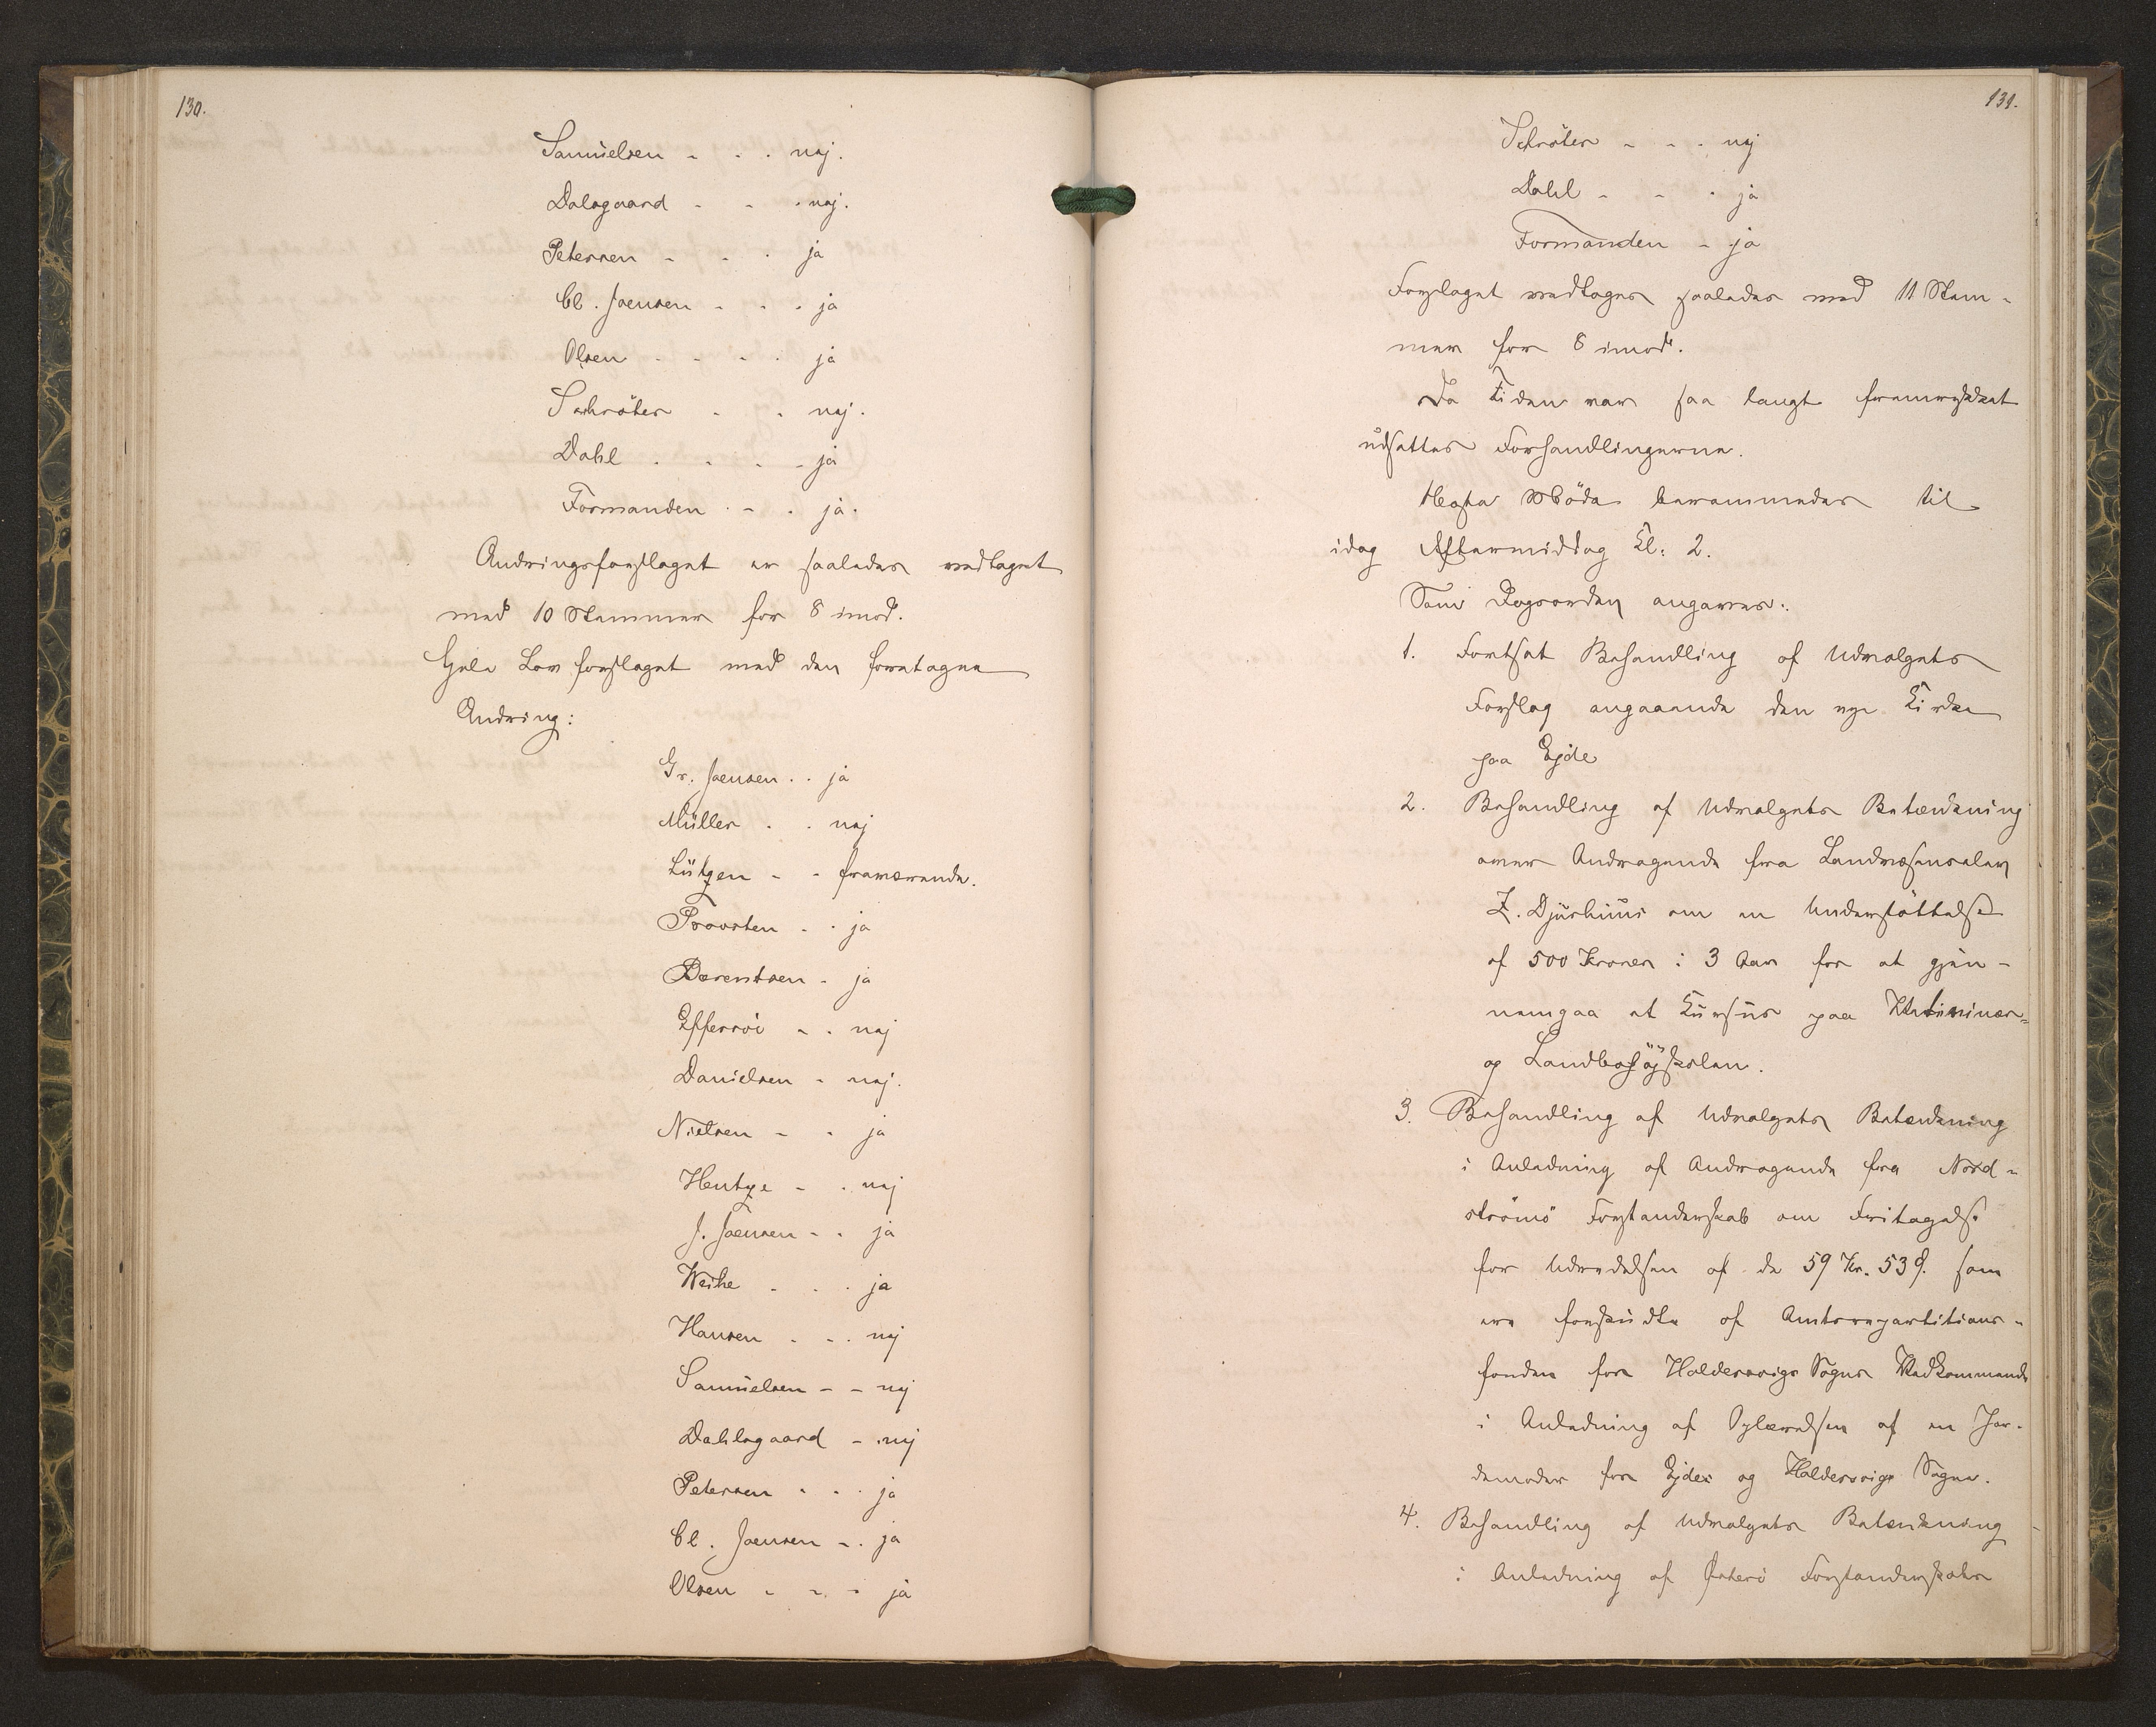 130.
Samuelsen - - . nej.
Dalsgaard - - . nej.
Petersen - - . ja
Cl. Joensen - - . ja
Olsen - - - . ja
Schröter - . nej.
Dahl . - . - ja
Formanden . - . ja.
Ændringsforslaget er saaledes vedtaget
med 10 Stemmer for 8 imod.
Hele Lovforslaget med den foretagne
Ændring:
Gr. Joensen . . ja
Müller . . nej
Lützen - - fraværende.
Provsten . . ja
Bærentsen . ja
Effersöe - . nej
Danielsen - nej.
Nielsen - . ja
Hentze - . nej
J. Joensen - . ja
Weihe . . . ja
Hansen . - . nej
Samuelsen - - nej
Dahlsgaard - . nej
Petersen . . . ja
Cl. Joensen - . ja
Olsen - - - ja
131.
Schröter - - . nej
Dahl - - . ja
Formanden - ja
Forslaget vedtages saaledes med 11 Stem-
mer for 8 imod.
Da Tiden var saa langt fremrykket
udsattes Forhandlingerne.
Næste Möde berammedes til
idag Eftermiddag Kl: 2.
Som Dagsorden angaves:
1. Fortsat Behandling af Udvalgets
Forslag angaaende den nye Kirke
paa Ejde
2. Behandling af Udvalgets Betænkning
over Andragende fra Landvæsenselev
Z. Djurhuus om en Understöttelse
af 500 Kroner i 3 Aar for at gjen-
nemgaa et Kursus paa Veterinær-
og Landbohöjskolen.
3. Behandling af Udvalgets Betænkning
i Anledning af Andragende fra Nord-
strömö Forstanderskab om Fritagelse
for Udredelsen af de 59 Kr. 53 Ø. som
ere forskudte af Amtsrepartitions-
fonden for Haldersvigs Sogns Vedkommende
i Anledning af Oplærelsen af en Jor-
demoder for Ejdes og Haldersvigs Sogne.
4. Behandling af Udvalgets Betænkning
i Anledning af Österö Forstanderskabs